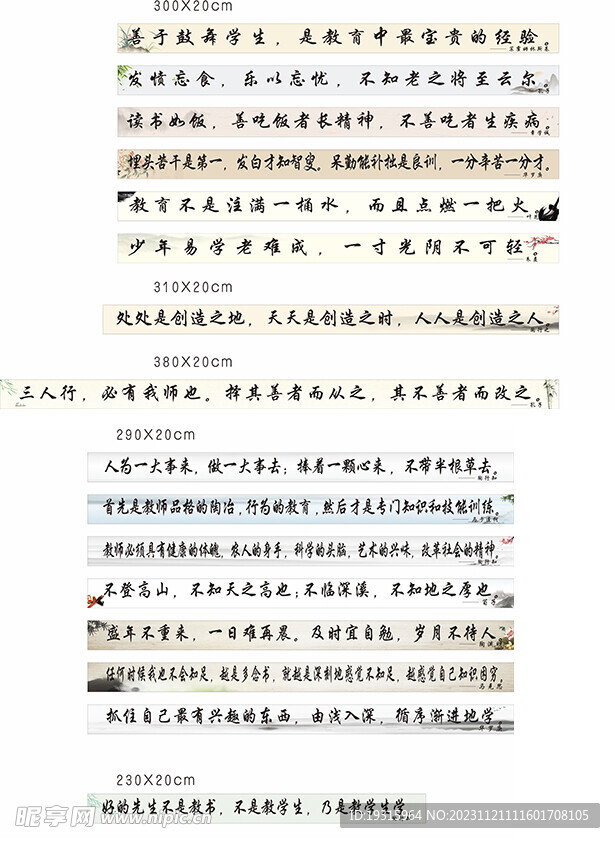 300X20cm
善于鼓舞学生，是教育中最宝贵的经验。
——苏霍姆林斯基
发愤忘食，乐以忘忧，不知老之将至云尔。
——孔子
读书如饭，善吃饭者长精神，不善吃者生疾病。
——章学诚
埋头苦干是第一，发白才知智叟。呆勤能补拙是良训，一分辛苦一分才。
——华罗庚
教育不是注满一桶水，而且点燃一把火。
——叶芝
少年易学老难成，一寸光阴不可轻。
——朱熹
310X20cm
处处是创造之地，天天是创造之时，人人是创造之人。
——陶行之
380X20cm
三人行，必有我师也。择其善者而从之，其不善者而改之。
——孔子
290X20cm
人为一大事来，做一大事去；捧着一颗心来，不带半根草去。
——陶行知
首先是教师品格的陶冶，行为的教育，然后才是专门知识和技能训练。
教师必须具有健康的体魄，农人的身手，科学的头脑，艺术的兴味，改革社会的精神。
——陶行知
不登高山，不知天之高也；不临深溪，不知地之厚也。
——荀子
盛年不重来，一日难再晨。及时宜自勉，岁月不待人。
——陶渊明
任何时候我也不会知足，越是多念书，就越是深刻地感觉不知足，越感觉自己知识困穷。
——马克思
抓住自己最有兴趣的东西，由浅入深，循序渐进地学。
——华罗庚
230X20cm
好的先生不是教书，不是教学生，乃是教学生学。
昵享网 www.nipic.cn
ID:19315964 NO:20231121111601708105